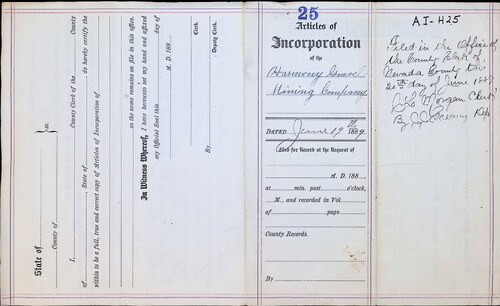 State of
} ss.
County of
I, County Clerk of the County
of , State of , do hereby certify the
within to be a full, true and correct copy of Articles of Incorporation of
as the same remains on file in this office.
In Witness Whereof, I have hereunto set my hand and affixed
my Official Seal this day of
A. D. 188
Clerk.
By , Deputy Clerk.
25
Articles of
Incorporation
of the
Harmony Grove
Mining Company
DATED June 19th 1889
Filed for Record at the Request of
A. D. 188
at min. past o'clock,
M., and recorded in Vol.
of page
County Records.
By
AI-H25
Filed in the Office of
the County Clerk of
Nevada County this
20th day of June 1889
Morgan Clerk
By J.J. Greany Dep.